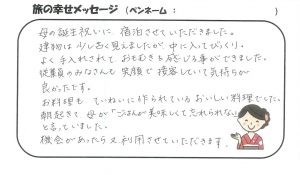 旅の幸せメッセージ（ペンネーム：　　　　　）
母の誕生祝いに 宿泊させていただきました。
建物は少し古く見えましたが、中に入ってびっくり。
よく手入れされて おもむきを感じる事ができました。
従業員のみなさんも 笑顔で 接客していて気持ちが
良かったです。
お料理も ていねいに作られている おいしい料理でした。
朝起きて 母が「ごはんが美味しくて忘れられない」
と言っていました。
機会があったら又利用させていただきます。